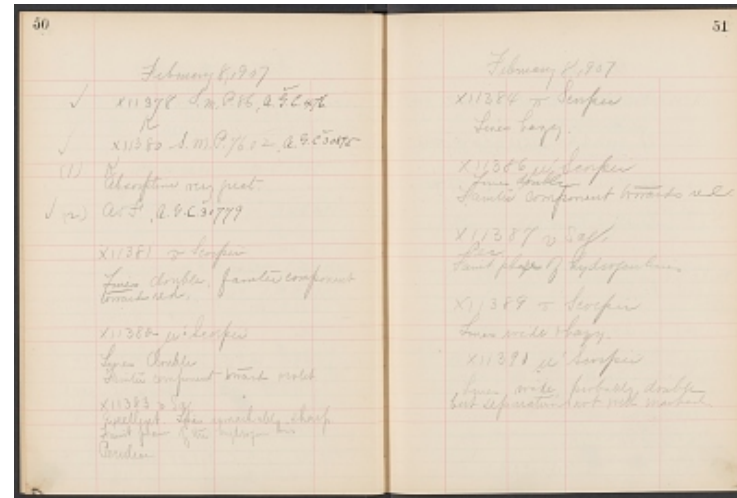 50
February 8, 1907
✓ X11378 S.M.P. 86, A.G.C.
K
✓ X11380 S.M.P. 7602, A.G.C. 30875
(1) K
Absorption very great.
✓ (2) A.G.C. 30779
X11381 Scorpii
Lines double, fainter component
towards red.
X11382 μ' Scorpii
Lines double
Fainter component towards violet
X11383 υ Sag.
remarkably sharp
hydrogen
51
February 8, 1907
X11384 Scorpii
Lines hazy.
X11386 μ' Scorpii
Lines double
Fainter component towards red
X11387 υ Sag.
Faint of hydrogen lines
X11389 Scorpii
Lines wide & hazy.
X11391 μ' Scorpii
Lines wide probably double
but separation not well marked.